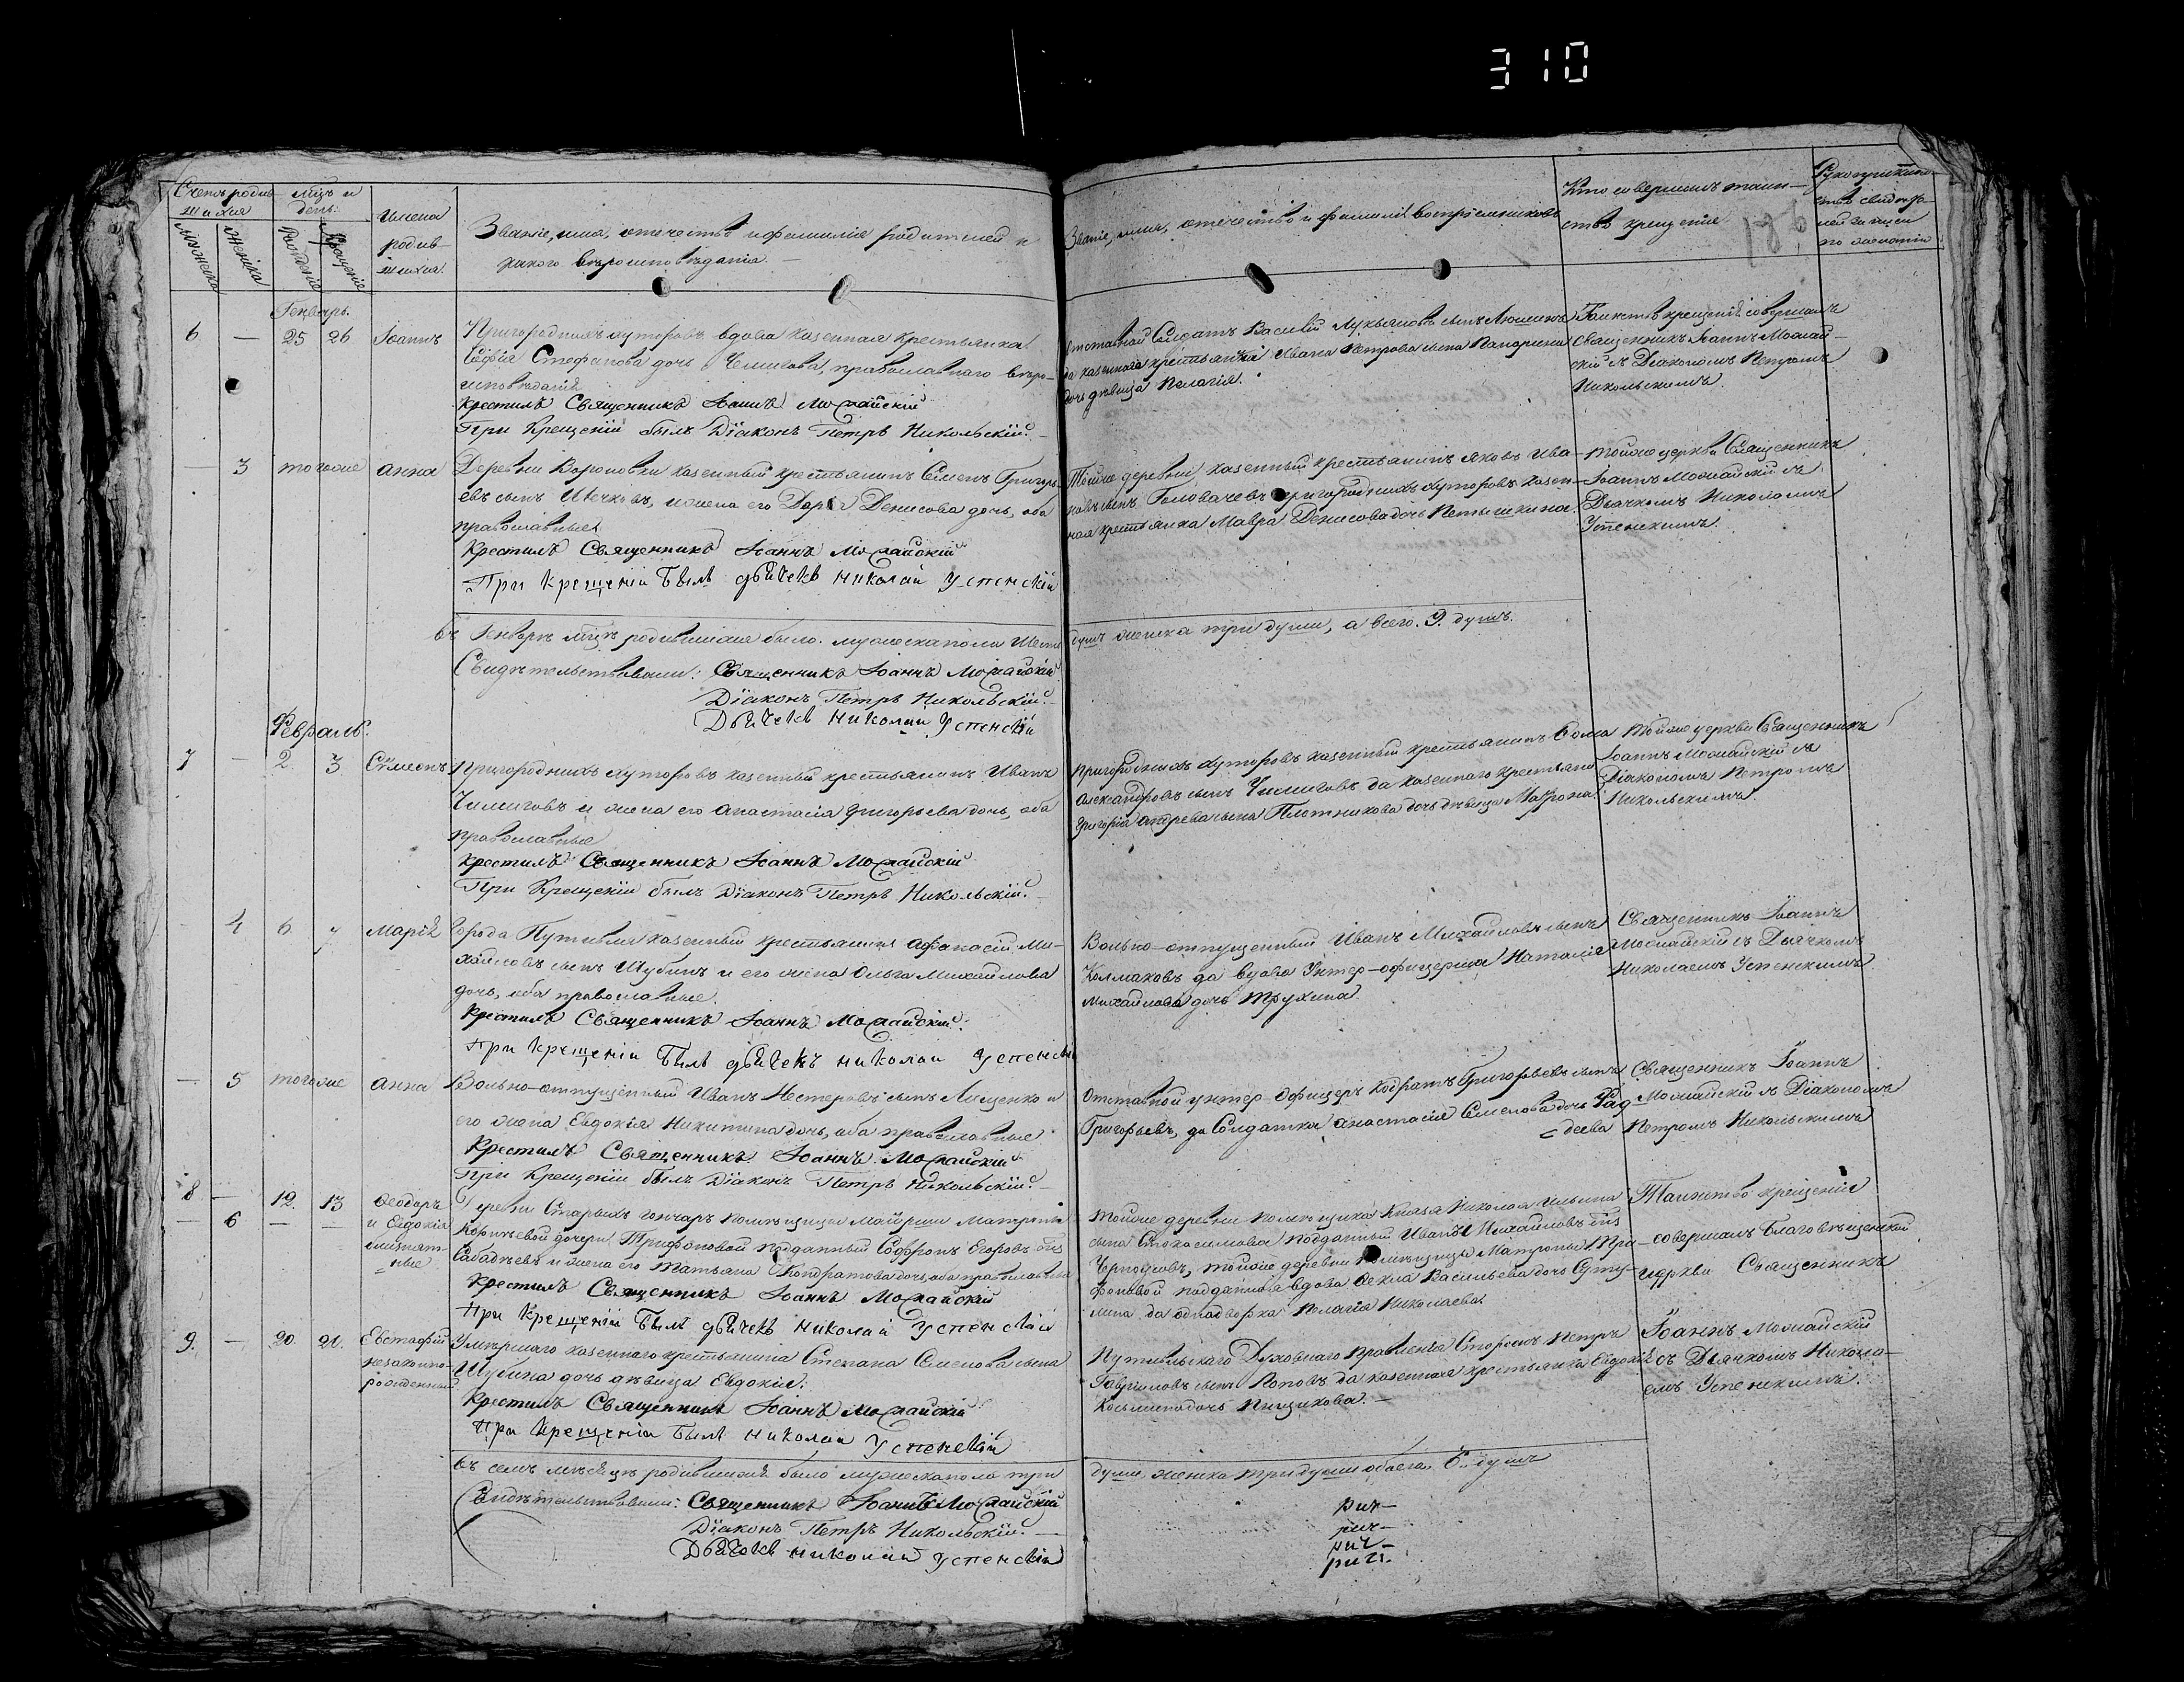 310
Счетъ родив-
шихся
Мужеска
Женска
мѣсц. и
день.
Рожденія
Крещенія
Имена
родив-
шихся.
Званіе, имя, отечество и фамилія родителей и
какого вѣроисповѣданія.
Званіе, имя, отечество и фамилія воспріемниковъ
Кто совершалъ таин-
ство крещенія
Генварь.
6 — 25 26 Іоаннъ
Пригородныхъ хуторовъ вдова казенная крестьянка
Софія Стефанова дочь Чемигова, православнаго вѣро-
исповѣданія
Крестилъ Священникъ Іоаннъ Можайскій
При Крещеніи былъ Діаконъ Петръ Никольскій.
Отставной Солдатъ Василій Лукьяновъ сынъ
да казеннаго крестьянина Ивана Петрова сына
дочь дѣвица Пелагія.
Таинство крещенія совершалъ
Священникъ Іоаннъ Можай-
скій съ Діакономъ Петромъ
Никольскимъ.
— 3 того же Анна
Деревни Вороновки казенный крестьянинъ Семенъ Григорь-
евъ сынъ Шечковъ, и жена его Дарія Денисова дочь, оба
православные
Крестилъ Священникъ Іоаннъ Можайскій
При Крещеніи Былъ дьячекъ Николай Успенскій
Той же деревни, казенный крестьянинъ Яковъ Ива-
новъ сынъ Головачевъ пригородныхъ хуторовъ казен-
ная крестьянка Мавра Денисова дочь Петышкина.
Той же церкви Священникъ
Іоаннъ Можайскій съ
Дьячкомъ Николаемъ
Успенскимъ.
Въ Генварѣ мѣсцѣ родившихся было. мужеска пола Шесть
душъ женска три души, а всего. 9. душъ.
Свидѣтельствовали: Священникъ Іоаннъ Можайскій
Діаконъ Петръ Никольскій.
Дьячекъ Николай Успенскій
Февраль.
7 — 2. 3 Сѵмеонъ
Пригородныхъ хуторовъ казенный крестьянинъ Иванъ
Чемиговъ и жена его Анастасія Григорьева дочь, оба
православные
Крестилъ Священникъ Іоаннъ Можайскій
При Крещеніи былъ Діаконъ Петръ Никольскій.
Пригородныхъ хуторовъ казенный крестьянинъ Ѳома
Александровъ сынъ Чемиговъ да казеннаго крестьяни
Григорія Андреева сына Плотникова дочь дѣвица Матрона.
Той же церкви Священникъ
Іоаннъ Можайскій съ
Діакономъ Петромъ
Никольскимъ.
— 4 6. 7 Марія
Города Путивля казенный крестьянинъ Афанасій Ми-
хайловъ сынъ Шубинъ и его жена Ольга Михайлова
дочь, оба православные.
Крестилъ Священникъ Іоаннъ Можайскій.
При Крещеніи Былъ дьячекъ Николай Успенскій
Вольно-отпущенный Иванъ Михайловъ сынъ
Колмаковъ да вдова Унтер-офицерша Наталія
Михайлова дочь Трухина
Священникъ Іоаннъ
Можайскій съ Дьячкомъ
Николаемъ Успенскимъ
— 5 того же Анна
Вольно-отпущенный Иванъ Нестеровъ сынъ Лященко и
его жена Евдокія Никитина дочь, оба православные
Крестилъ Священникъ Іоаннъ Можайскій
При Крещеніи былъ Діаконъ Петръ Никольскій.
Отставной унтер-Офицеръ Кодратъ Григорьевъ сынъ
Григорьевъ, да Солдатка Анастасія Семенова дочь Фад-
деева
Священникъ Іоаннъ
Можайскій съ Діакономъ
Петромъ Никольскимъ
8 — 12. 13 Ѳеодоръ
— 6 — — и Евдокія
близнят-
ные
Деревни Старыхъ Гончаръ помѣщицы Маіорши Матроны
Корнѣевой дочери Трифоновой подданный Софронъ Егоровъ снъ
Сабадѣевъ и жена его Татьяна Кондратова дочь, оба православные
Крестилъ Священникъ Іоаннъ Можайскій
При Крещеніи Былъ дьячекъ Николай Успенскій
Той же деревни помѣщика Князя Николая Ильина
сына Стокасимова подданный Иванъ Михайловъ снъ
Черноусовъ, той же деревни помѣщицы Матроны Три-
фоновой подданная вдова Ѳекла Васильева дочь
да однодворка Пелагія Николаева.
Таинство крещенія
совершалъ Благовѣщенской
церкви Священникъ
Іоаннъ Можайскій
съ Дьячкомъ Никола-
емъ Успенскимъ.
9. — 20. 21. Евстафій
незаконно-
рожденный
Умершаго казеннаго крестьянина Степана Семенова сына
Шубина дочь дѣвица Евдокія.
Крестилъ Священникъ Іоаннъ Можайскій
При Крещеніи Былъ Николай Успенскій
Путивльскаго Духовнаго Правленія Сторожъ Петръ
Гавриловъ сынъ Поповъ да казенная крестьянка Евдокія
Косьмина дочь Пищикова. —
Въ семъ мѣсяцѣ родившихся было мужеска пола три
души, женска три души обоего. 6. душъ
Свидѣтельствовали: Священникъ Іоаннъ Можайскій
Діаконъ Петръ Никольскій. —
Дьячекъ Николай Успенскій